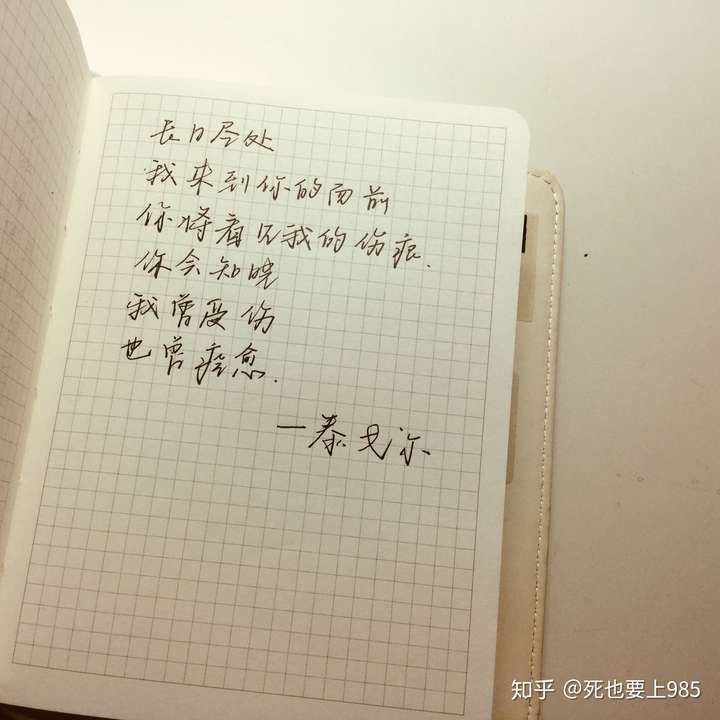 长日尽处
我来到你的面前
你将看见我的伤痕.
你会知晓
我曾受伤
也曾痊愈.
—泰戈尔
知乎 @死也要上985